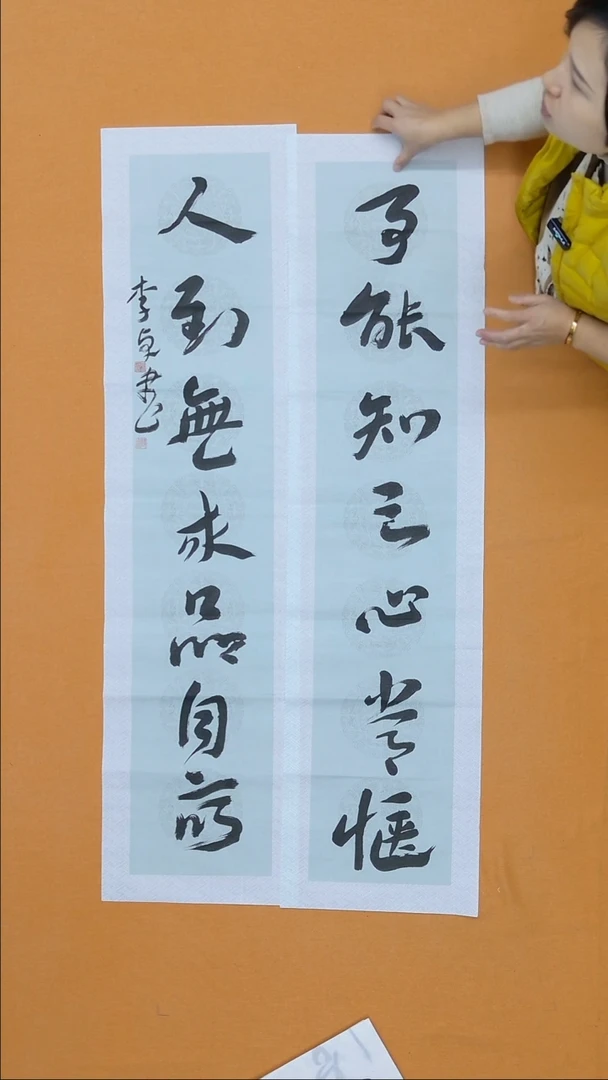 事能知足心常愜
人到無求品自高
李